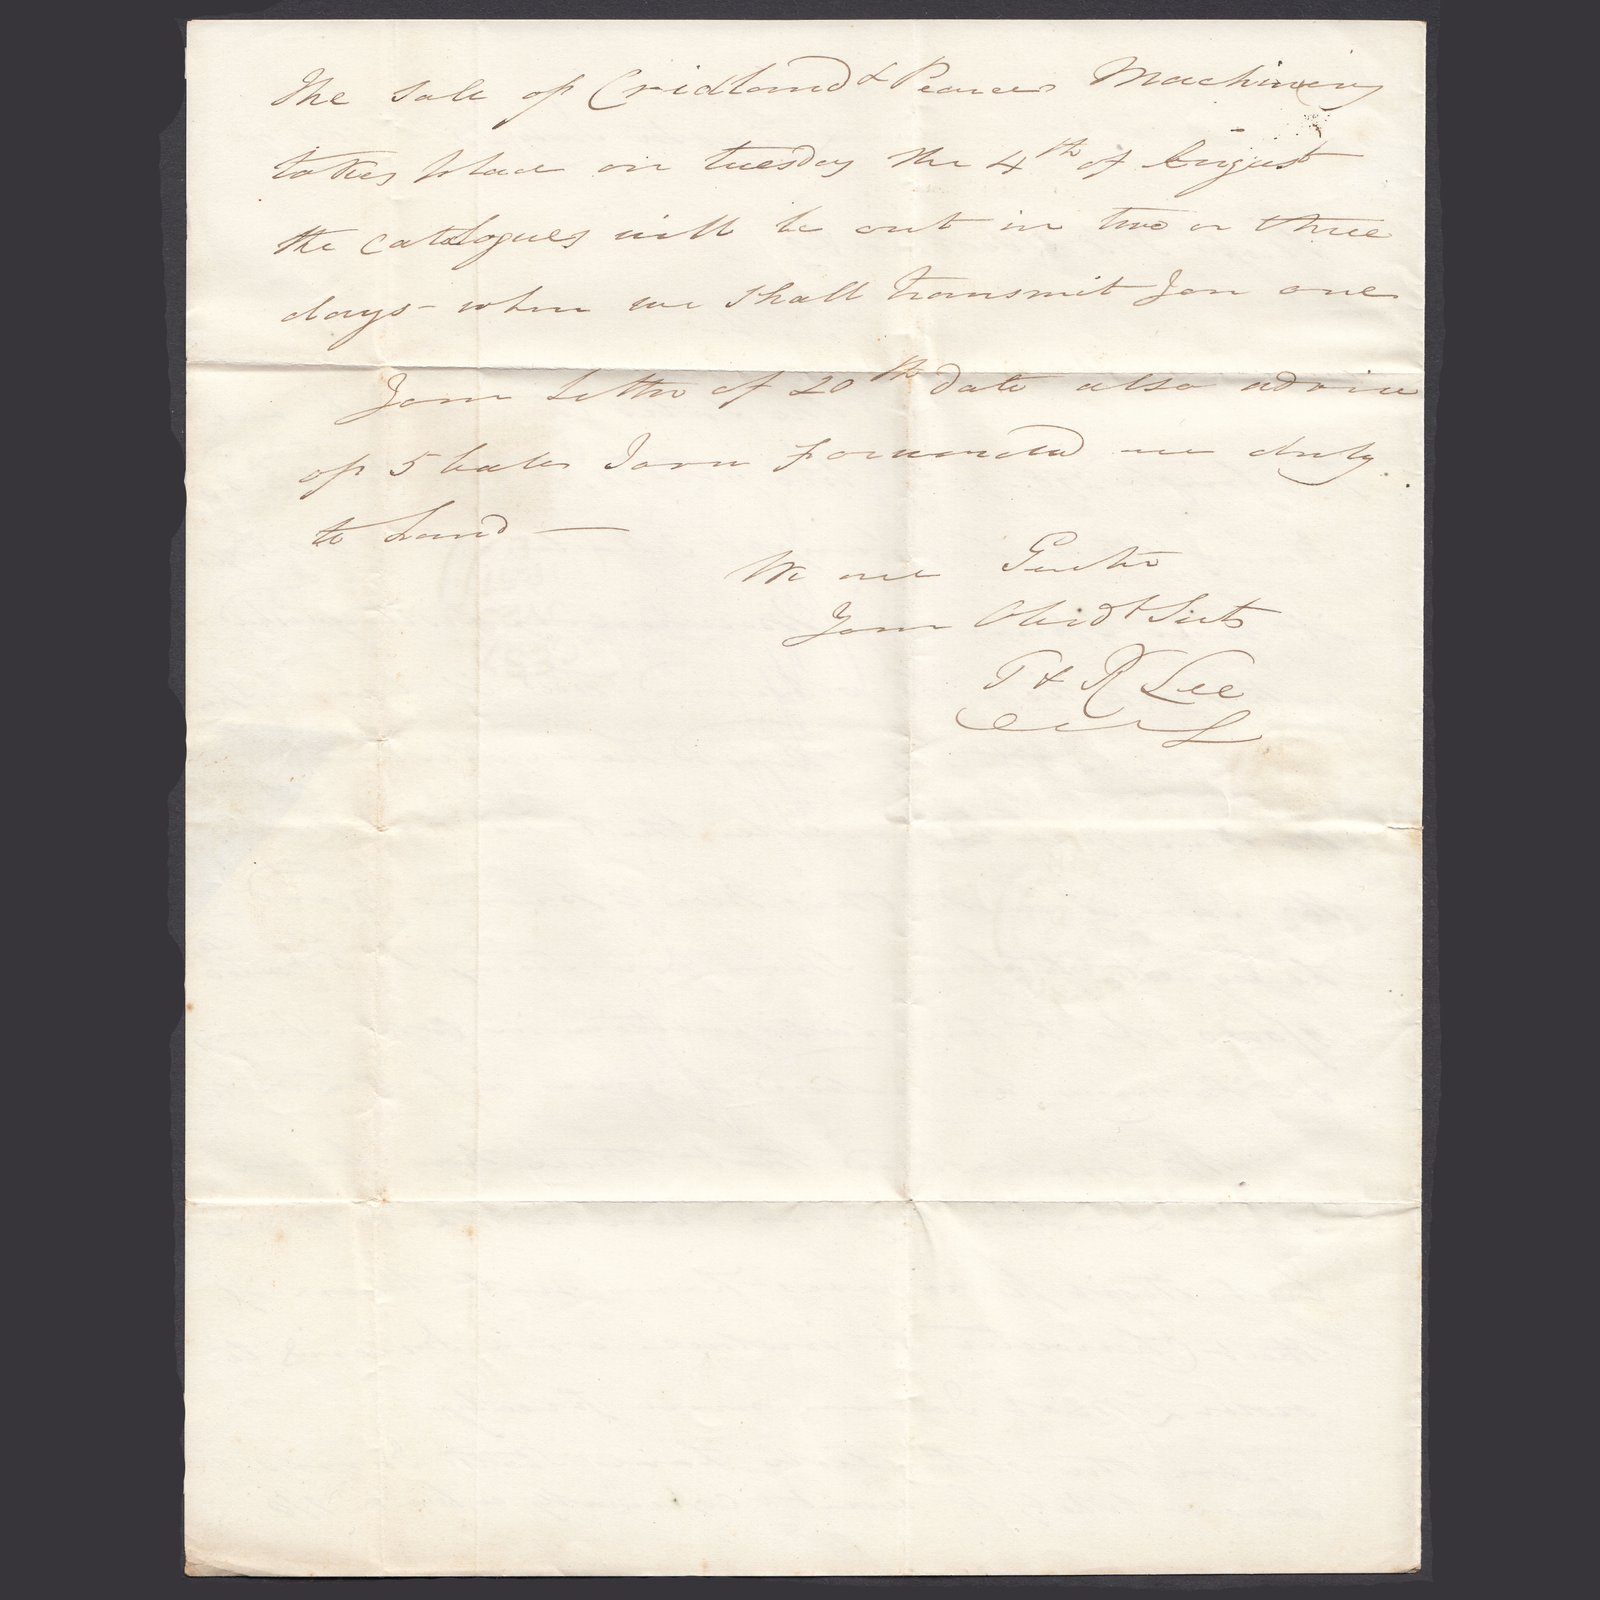 The sale of Cridland & Pearces Machinery
takes place on tuesday the 4th of August
the catalogues will be out in two or three
days - when we shall transmit you one
Your Letter of 20th date also advice
of 5 bales Yarn forwarded are duly
to hand —
We are Gentn
Your Obedt Svts
T & R Lee